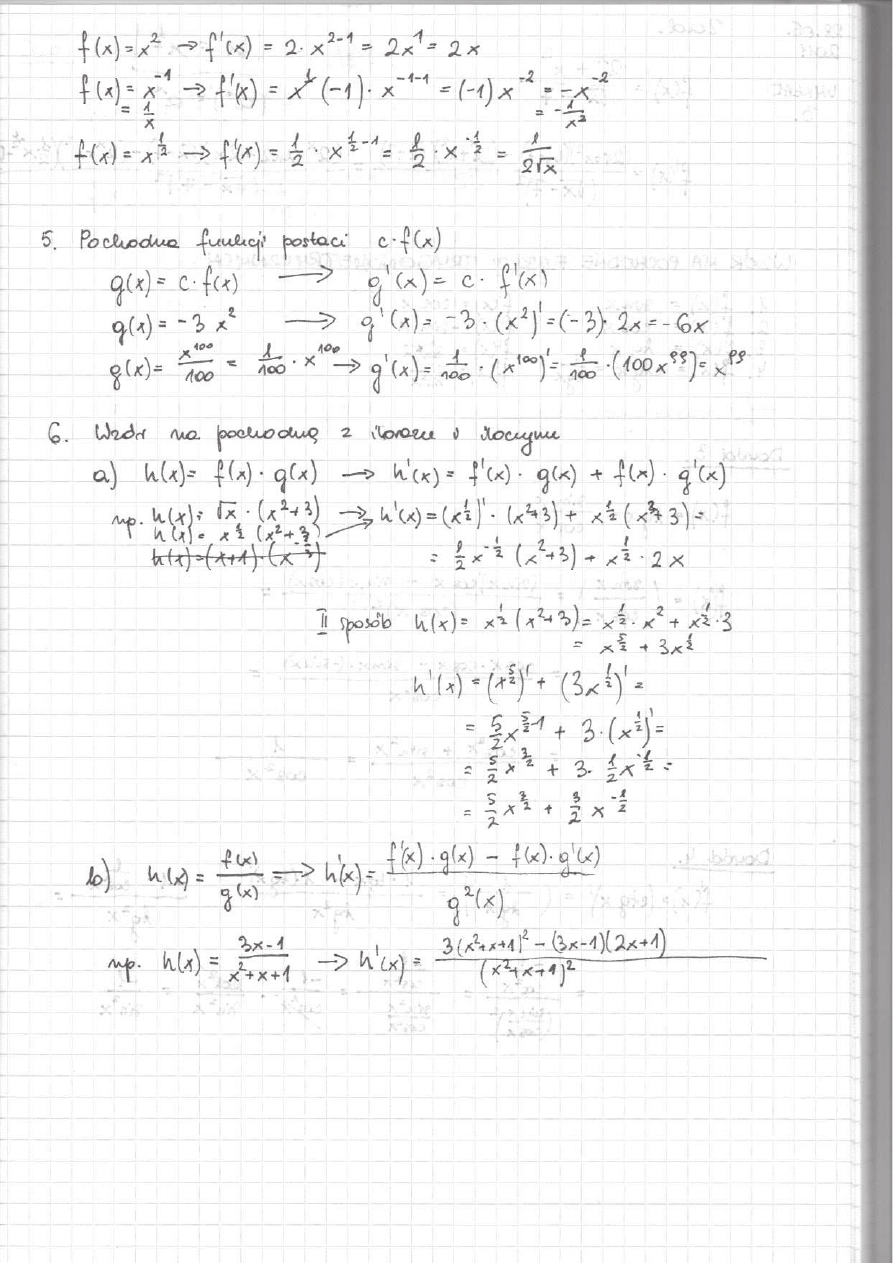 f(x) = x² → f'(x) = 2 · x²⁻¹ = 2x¹ = 2x
f(x) = x⁻¹ → f'(x) = (-1) · x⁻¹⁻¹ = (-1) x⁻² = -x⁻²
= 1/x = -1/x³
f(x) = x^(1/2) → f'(x) = 1/2 · x^(1/2 - 1) = 1/2 · x^(-1/2) = 1/(2√x)
5. Pochodna funkcji postaci c·f(x)
g(x) = c·f(x) → g'(x) = c · f'(x)
g(x) = -3 x² → g'(x) = -3 · (x²)' = (-3) · 2x = -6x
g(x) = x¹⁰⁰/100 = 1/100 · x¹⁰⁰ → g'(x) = 1/100 · (x¹⁰⁰)' = 1/100 · (100x⁹⁹) = x⁹⁹
6. Wzór na pochodną z ilorazu i iloczynu
a) h(x) = f(x) · g(x) → h'(x) = f'(x) · g(x) + f(x) · g'(x)
np. h(x) = √x · (x²+3) → h'(x) = (x^(1/2))' · (x²+3) + x^(1/2) (x²+3) =
h(x) = x^(1/2) (x²+3)
= 1/2 x^(-1/2) (x²+3) + x^(1/2) · 2x
II sposób h(x) = x^(1/2) (x²+3) = x^(1/2) · x² + x^(1/2) · 3
= x^(5/2) + 3x^(1/2)
h'(x) = (x^(5/2))' + (3x^(1/2))' =
= 5/2 x^(5/2 - 1) + 3 · (x^(1/2))' =
= 5/2 x^(3/2) + 3 · 1/2 x^(-1/2) =
= 5/2 x^(3/2) + 3/2 x^(-1/2)
b) h(x) = f(x)/g(x) → h'(x) = (f'(x) · g(x) - f(x) · g'(x))/g²(x)
np. h(x) = (3x-1)/(x²+x+1) → h'(x) = (3(x²+x+1)² - (3x-1)(2x+1))/(x²+x+1)²